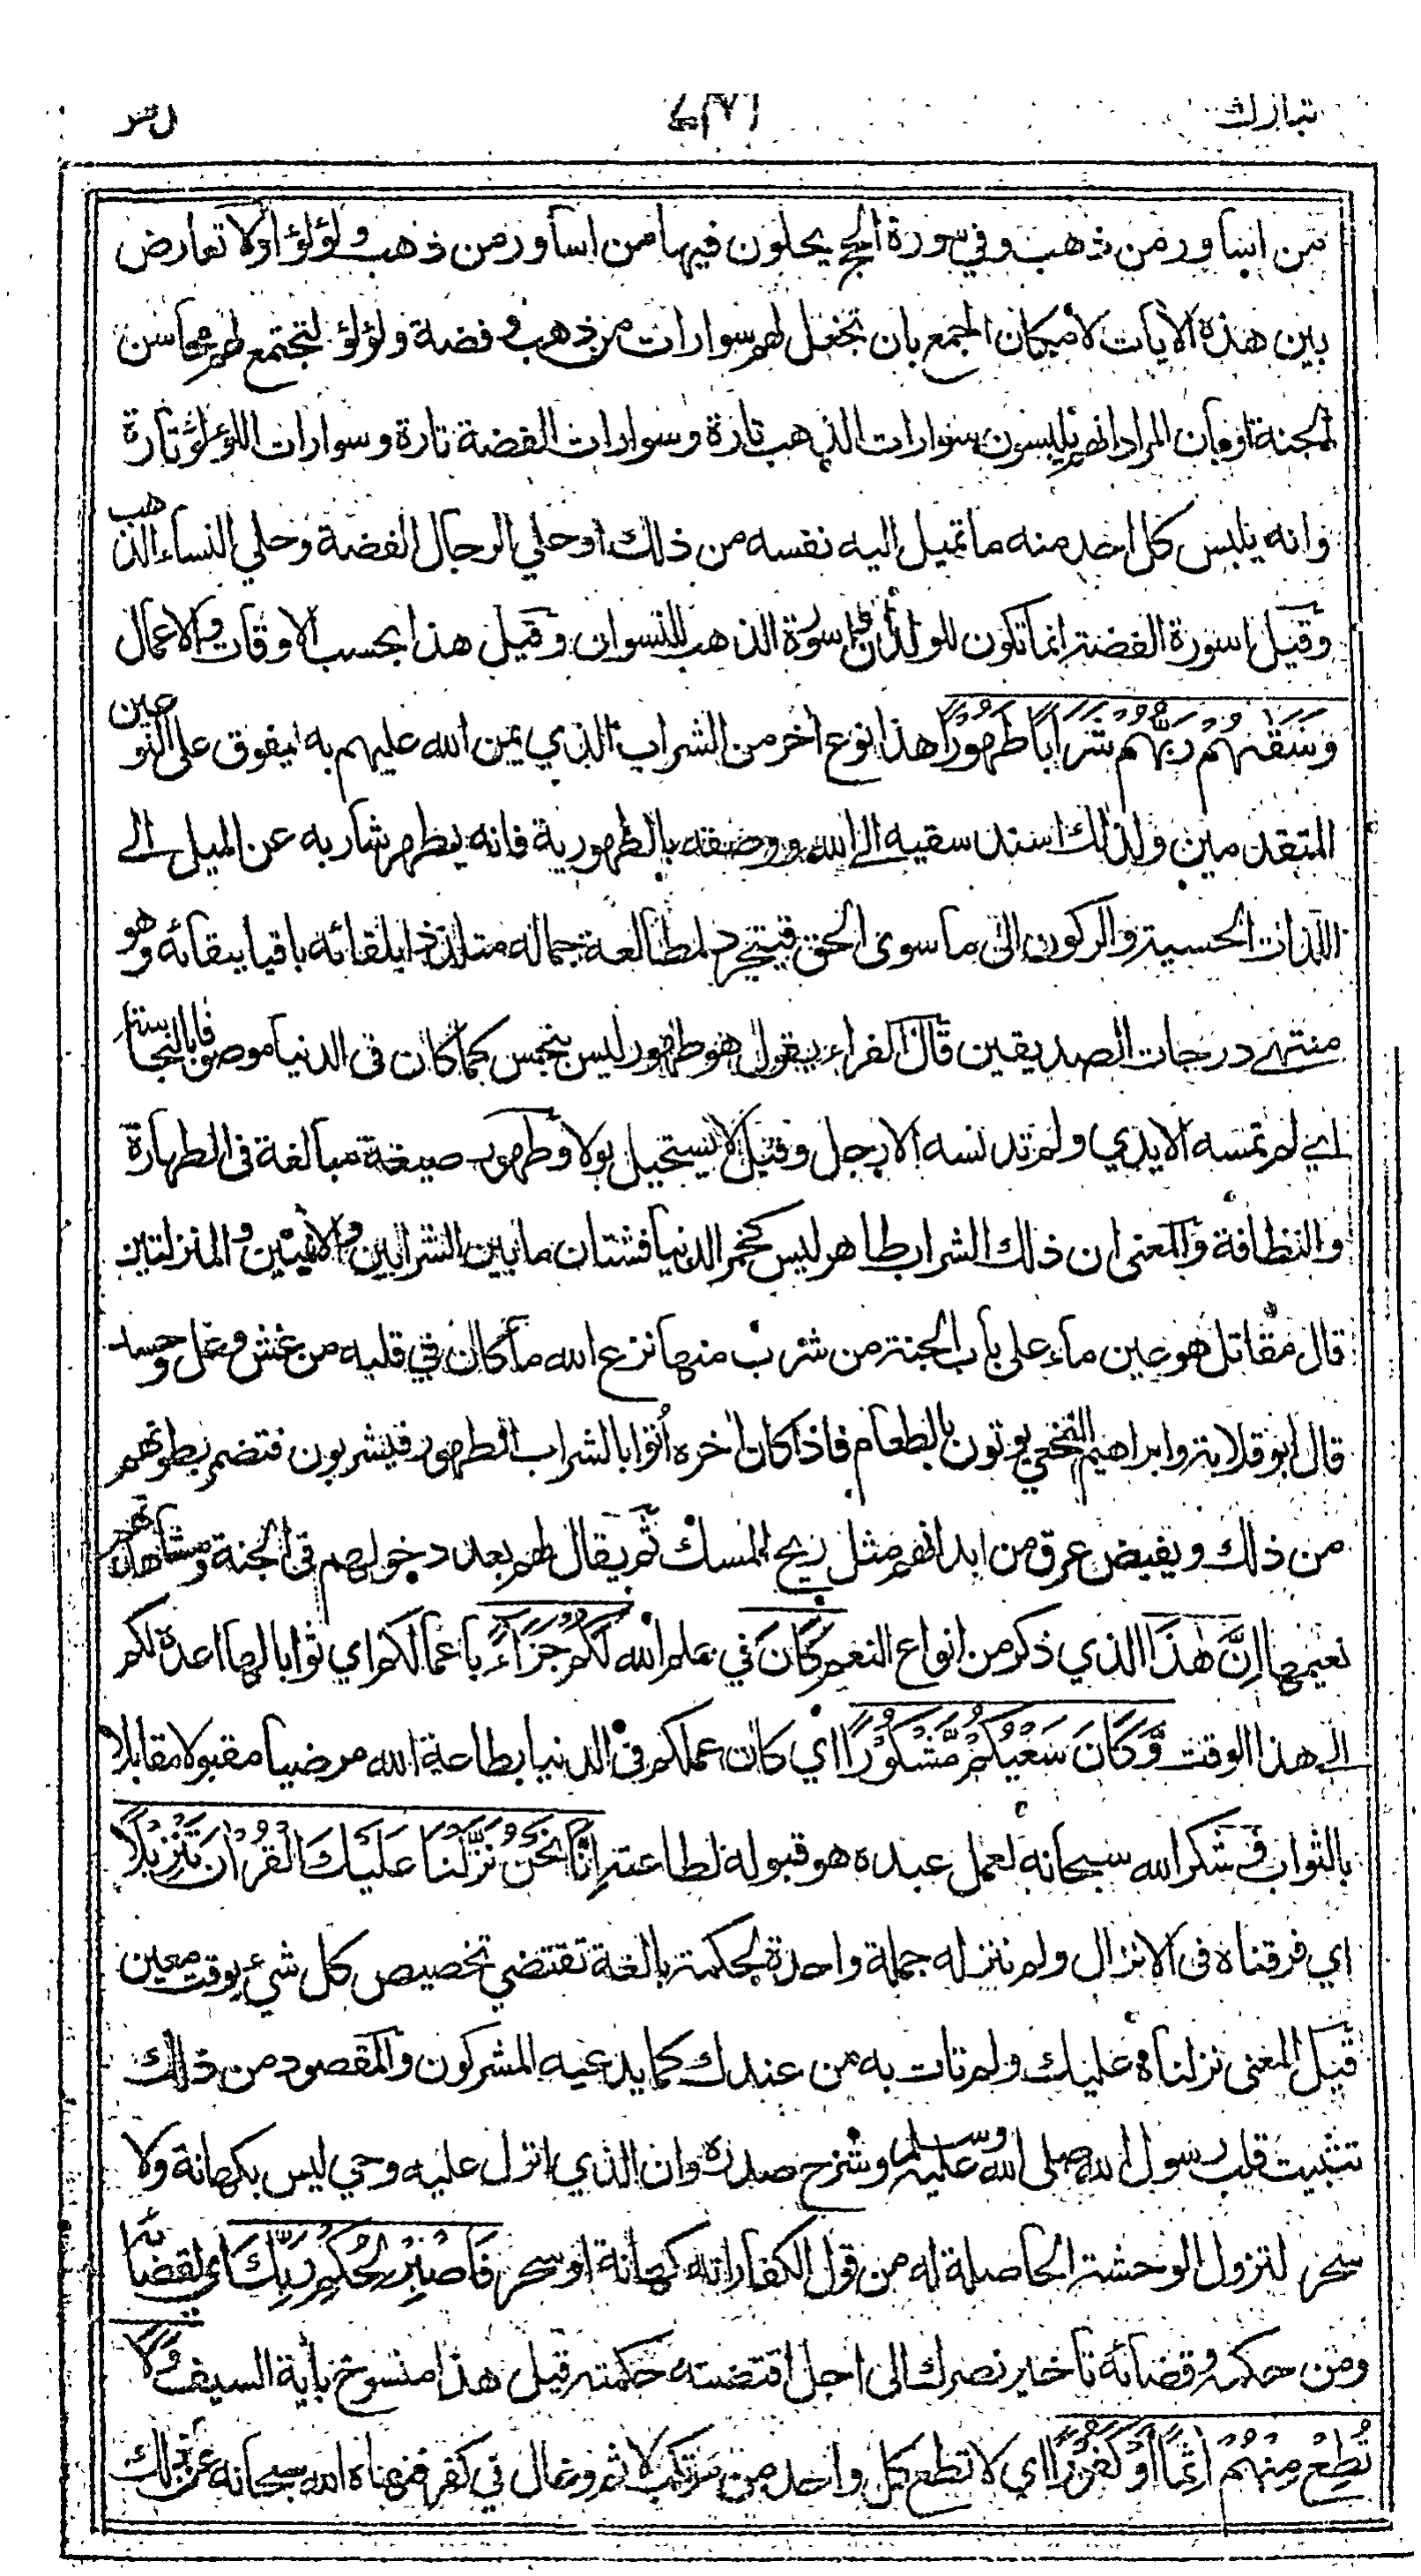 تبارك
من اساور من ذهب وفي سورة الحج يحلون فيها من اساور من ذهب ولؤلؤا ولا تعارض
بين هذه الآيات لامكان الجمع بان تجعل لهم سوارات من ذهب وفضة ولؤلؤ لتجتمع لهم محاسن
الجنة او بان المراد انهم يلبسون سوارات الذهب تارة وسوارات الفضة تارة وسوارات اللؤلؤ تارة
وانه يلبس كل احد منه ما تميل اليه نفسه من ذلك او حلي الرجال الفضة وحلي النساء الذهب
وقيل اسورة الفضة انما تكون للولدان واسورة الذهب للنسوان وقيل هذا بحسب الاوقات والاعمال
وَسَقٰىهُمْ رَبُّهُمْ شَرَابًا طَهُوْرًا هذا نوع اخر من الشراب الذي يمن الله عليهم به يفوق على النوعين
المتقدمين ولذلك اسند سقيه الى الله ووصفه بالطهورية فانه يطهر شاربه عن الميل الى
اللذات الحسية والركون الى ما سوى الحق فيتجرد لمطالعة جماله متلذذا بلقائه باقيا ببقائه وهو
منتهى درجات الصديقين قال الفراء يقول هو طهور ليس بنجس كما كان في الدنيا موصوفا بالنجاسة
اي لم تمسه الايدي ولم تدنسه الارجل وقيل لا يستحيل بولا وطهور صيغة مبالغة في الطهارة
والنظافة والمعنى ان ذلك الشراب طاهر ليس كخمر الدنيا فشتان ما بين الشرابين والآنيتين والمنزلتين
قال مقاتل هو عين ماء على باب الجنة من شرب منها نزع الله ما كان في قلبه من غش وغل وحسد
قال ابو قلابة وابراهيم النخعي يوتون بالطعام فاذا كان اخره أتوا بالشراب الطهور فيشربون فتضمر بطونهم
من ذلك ويفيض عرق من ابدانهم مثل ريح المسك ثم يقال لهم بعد دخولهم في الجنة ومشاهدتهم
نعيمها اِنَّ هٰذَا الذي ذكر من انواع النعيم كَانَ في علم الله لَكُمْ جَزَاءً باعمالكم اي ثوابا لها اعدة لكم
الى هذا الوقت وَّكَانَ سَعْيُكُمْ مَّشْكُوْرًا اي كان عملكم في الدنيا بطاعة الله مرضيا مقبولا مقابلا
بالثواب فشكر الله سبحانه لعمل عبده هو قبوله لطاعته اِنَّا نَحْنُ نَزَّلْنَا عَلَيْكَ الْقُرْاٰنَ تَنْزِيْلًا
اي فرقناه في الانزال ولم ننزله جملة واحدة لحكمة بالغة تقتضي تخصيص كل شيء بوقت معين
قيل المعنى نزلناه عليك ولم تات به من عندك كما يدعيه المشركون والمقصود من ذلك
تثبيت قلب رسول الله صلى الله عليه وسلم وشرح صدره وان الذي انزل عليه وحي ليس بكهانة ولا
سحر لتزول الوحشة الحاصلة له من قول الكفار انه كهانة او سحر فَاصْبِرْ لِحُكْمِ رَبِّكَ اي لقضائه
ومن حكمه وقضائه تاخير نصرك الى اجل اقتضته حكمته قيل هذا منسوخ بآية السيف وَلَا
تُطِعْ مِنْهُمْ اٰثِمًا اَوْ كَفُوْرًا اي لا تطع كل واحد من مرتكب لاثم وغال في كفر فنهاه الله سبحانه عن ذلك